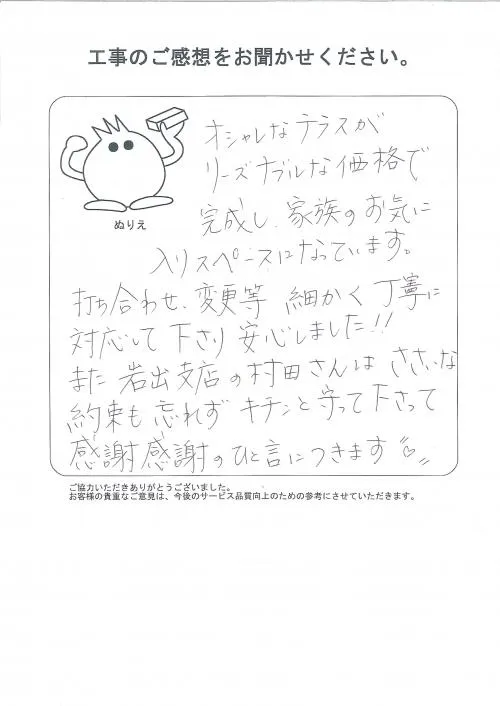 工事のご感想をお聞かせください。
オシャレなテラスが
リーズナブルな価格で
完成し、家族のお気に
ぬりえ
入りスペースになっています。
打ち合わせ、変更等 細かく丁寧に
対応して下さり安心しました!!
また岩出支店の村田さんは ささいな
約束も忘れず キチンと守って下さって
感謝感謝のひと言につきます
ご協力いただきありがとうございました。
お客様の貴重なご意見は、今後のサービス品質向上のための参考にさせていただきます。